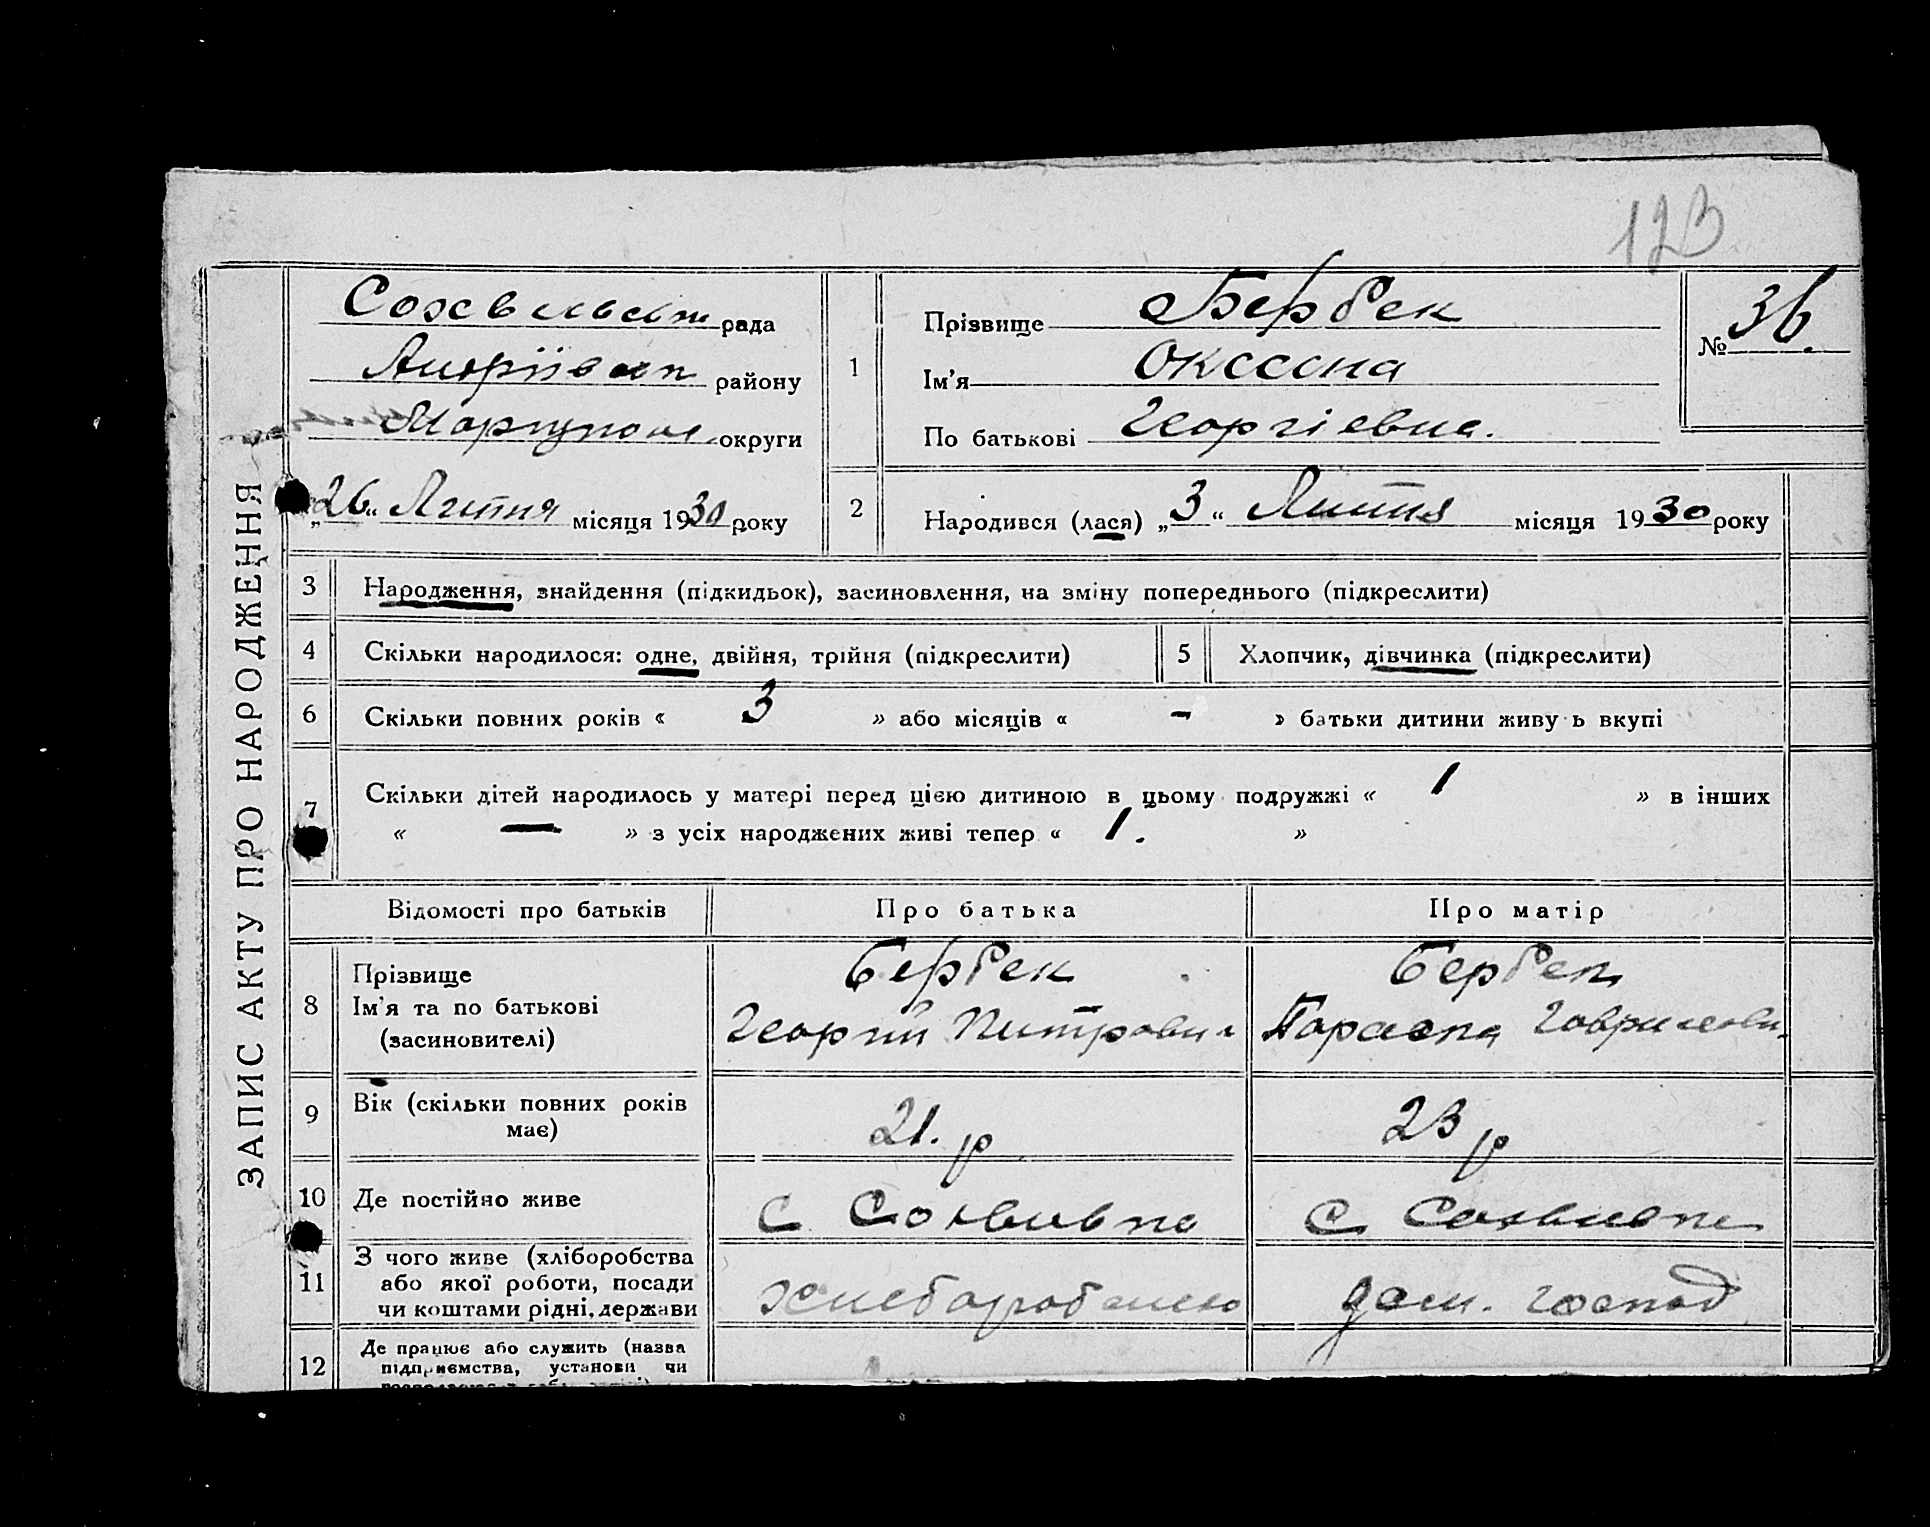 123
ЗАПИС АКТУ ПРО НАРОДЖЕННЯ
рада
району
округи
„26“ Лютня місяця 1930 року
1
Прізвище Бербек
Ім'я Оксана
По батькові Георгіевна.
№ 36.
2
Народився (лася) „3“ Лютня місяця 1930 року
3 Народження, знайдення (підкидьок), засиновлення, на зміну попереднього (підкреслити)
4 Скільки народилося: одне, двійня, трійня (підкреслити)
5 Хлопчик, дівчинка (підкреслити)
6 Скільки повних років « 3 » або місяців « - » батьки дитини живуть вкупі
7 Скільки дітей народилось у матері перед цією дитиною в цьому подружжі « 1 » в інших
« — » з усіх народжених живі тепер « 1. »
Відомості про батьків
Про батька
Про матір
8 Прізвище
Ім'я та по батькові
(засновителі)
Бербек
Георгій
Бербек
9 Вік (скільки повних років
має)
21. р
23 р
10 Де постійно живе
с
с
11 З чого живе (хліборобства
або якої роботи, посади
чи коштами рідні, держави
дом. господ
12 Де працює або служить (назва
підприємства, установи чи